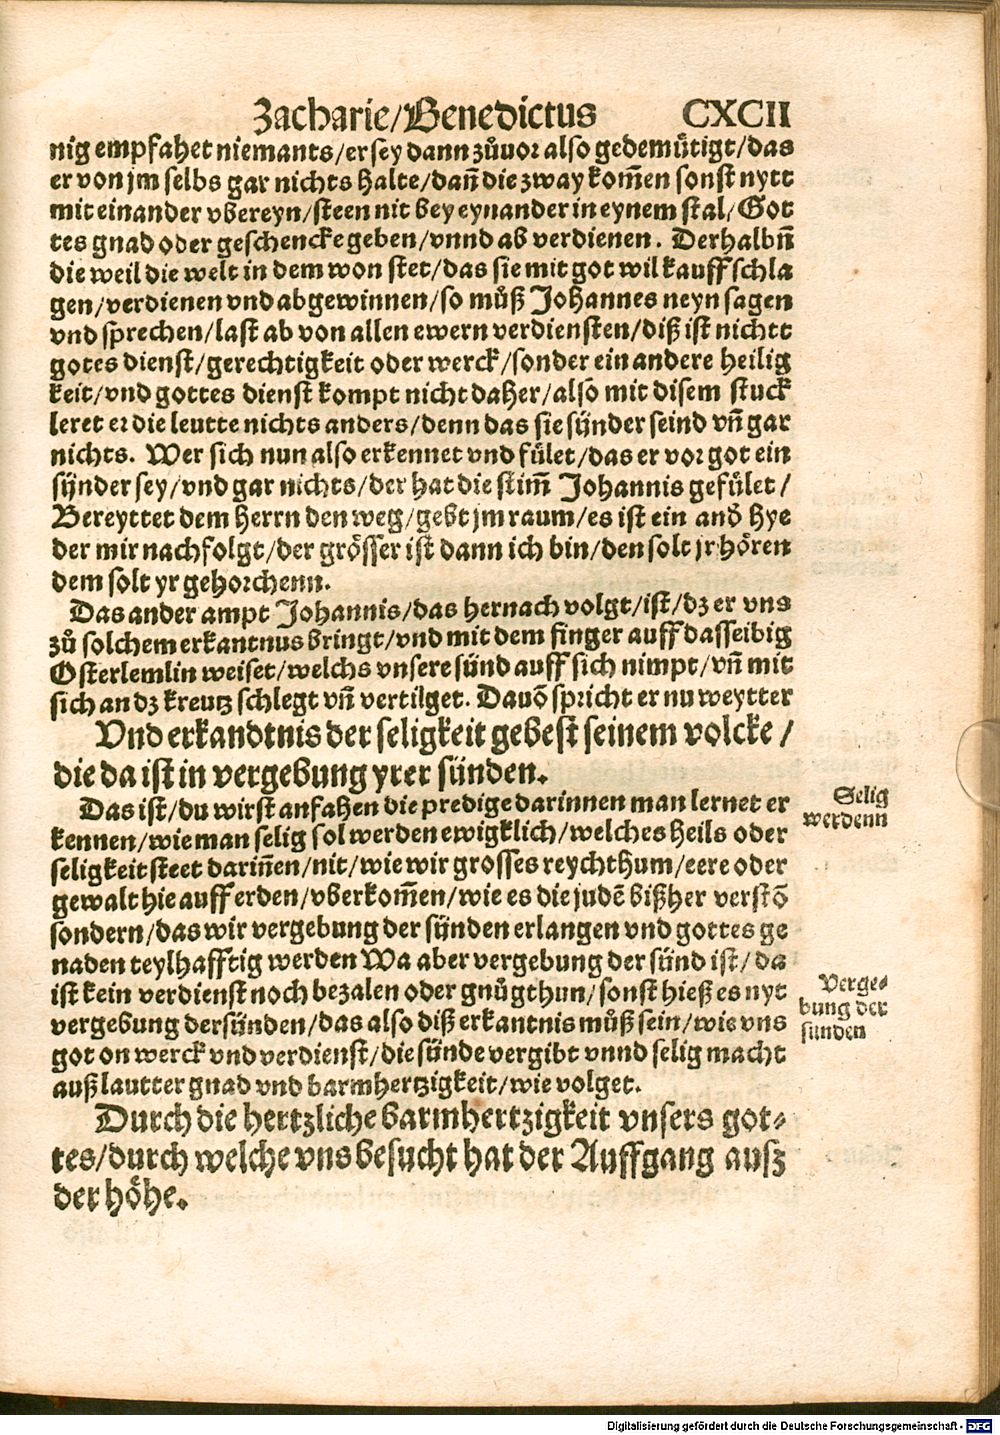 Zacharie/Benedictus CXCII
nig empfahet niemants/er sey dann zůuor also gedemütigt/das
er von jm selbs gar nichts halte/dañ die zway kom̃en sonst nytt
mit einander vbereyn/steen nit bey eynander in eynem stal/Got
tes gnad oder geschencke geben/vnnd ab verdienen. Derhalbñ
die weil die welt in dem won stet/das sie mit got wil kauffschla
gen/verdienen vnd abgewinnen/so můß Johannes neyn sagen
vnd sprechen/last ab von allen ewern verdiensten/diß ist nichtt
gotes dienst/gerechtigkeit oder werck/sonder ein andere heilig
keit/vnd gottes dienst kompt nicht daher/also mit disem stuck
leret er die leutte nichts anders/denn das sie sünder seind vñ gar
nichts. Wer sich nun also erkennet vnd fület/das er vor got ein
sünder sey/vnd gar nichts/der hat die stim̃ Johannis gefület/
Bereyttet dem Herrn den weg/gebt jm raum/es ist ein andõ hye
der mir nachfolgt/der grösser ist dann ich bin/den solt jr hören
dem solt yr gehorchenn.
Das ander ampt Johannis/das hernach volgt/ist/dz er vns
zů solchem erkantnus bringt/vnd mit dem finger auff dasseibig
Osterlemlin weiset/welchs vnsere sünd auff sich nimpt/vñ mit
sich an dz kreutz schlegt vñ vertilget. Dauõ spricht er nu weytter
Vnd erkandtnis der seligkeit gebest seinem volcke/
die da ist in vergebung yrer sünden.
Das ist/du wirst anfahen die predige darinnen man lernet er
kennen/wie man selig sol werden ewigklich/welches heils oder
seligkeit steet dariñen/nit/wie wir grosses reychthum/eere oder
gewalt hie auff erden/vberkom̃en/wie es die judẽ bißher verstõ
sondern/das wir vergebung der sünden erlangen vnd gottes ge
naden teylhafftig werden Wa aber vergebung der sünd ist/da
ist kein verdienst noch bezalen oder gnůgthun/sonst hieß es nyt
vergebung der sünden/das also diß erkantnis můß sein/wie vns
got on werck vnd verdienst/die sünde vergibt vnnd selig macht
auß lautter gnad vnd barmhertzigkeit/wie volget.
Durch die hertzliche barmhertzigkeit vnsers got-
tes/durch welche vns besucht hat der Auffgang ausz
der höhe.
Selig
werdenn
Verge-
bung der
sunden
Digitalisierung gefördert durch die Deutsche Forschungsgemeinschaft - DFG